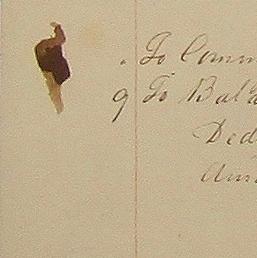 To Comm
9 To Bala
Ded
Am